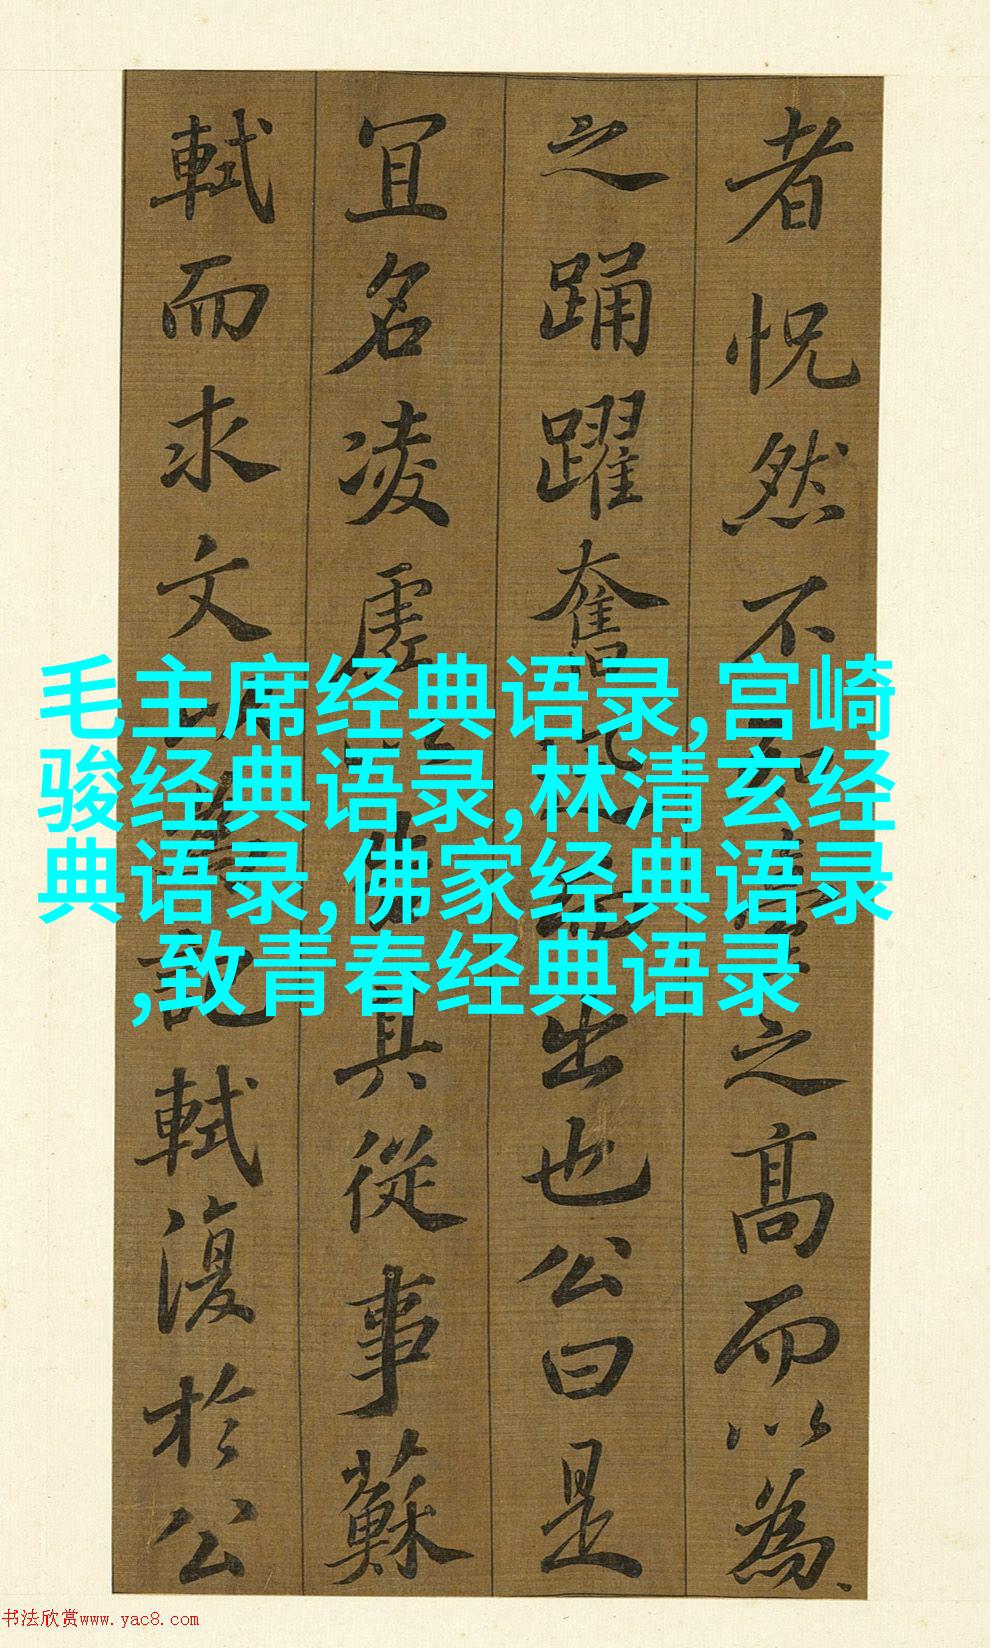 者怳然不知臺之高而以為
之踊躍奮迅而出也公曰是
宜名凌虛以告其從事蘇
軾而求文以為記軾復於公
毛主席经典语录,宫崎
骏经典语录,林清玄经
典语录,佛家经典语录
,致青春经典语录
书法欣赏www.yac8.com